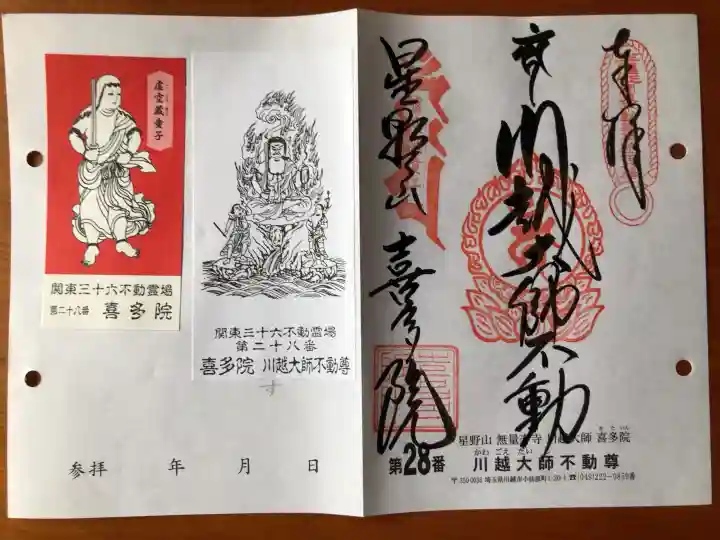 奉拝
川越大師不動
星野山 喜多院
星野山 無量寿寺 川越大師 喜多院
きたいん
かわごえだい
第28番 川越大師不動尊
虚空蔵童子
関東三十六不動霊場
第二十八番 喜多院
関東三十六不動霊場
第二十八番
喜多院 川越大師不動尊
参拝 年 月 日